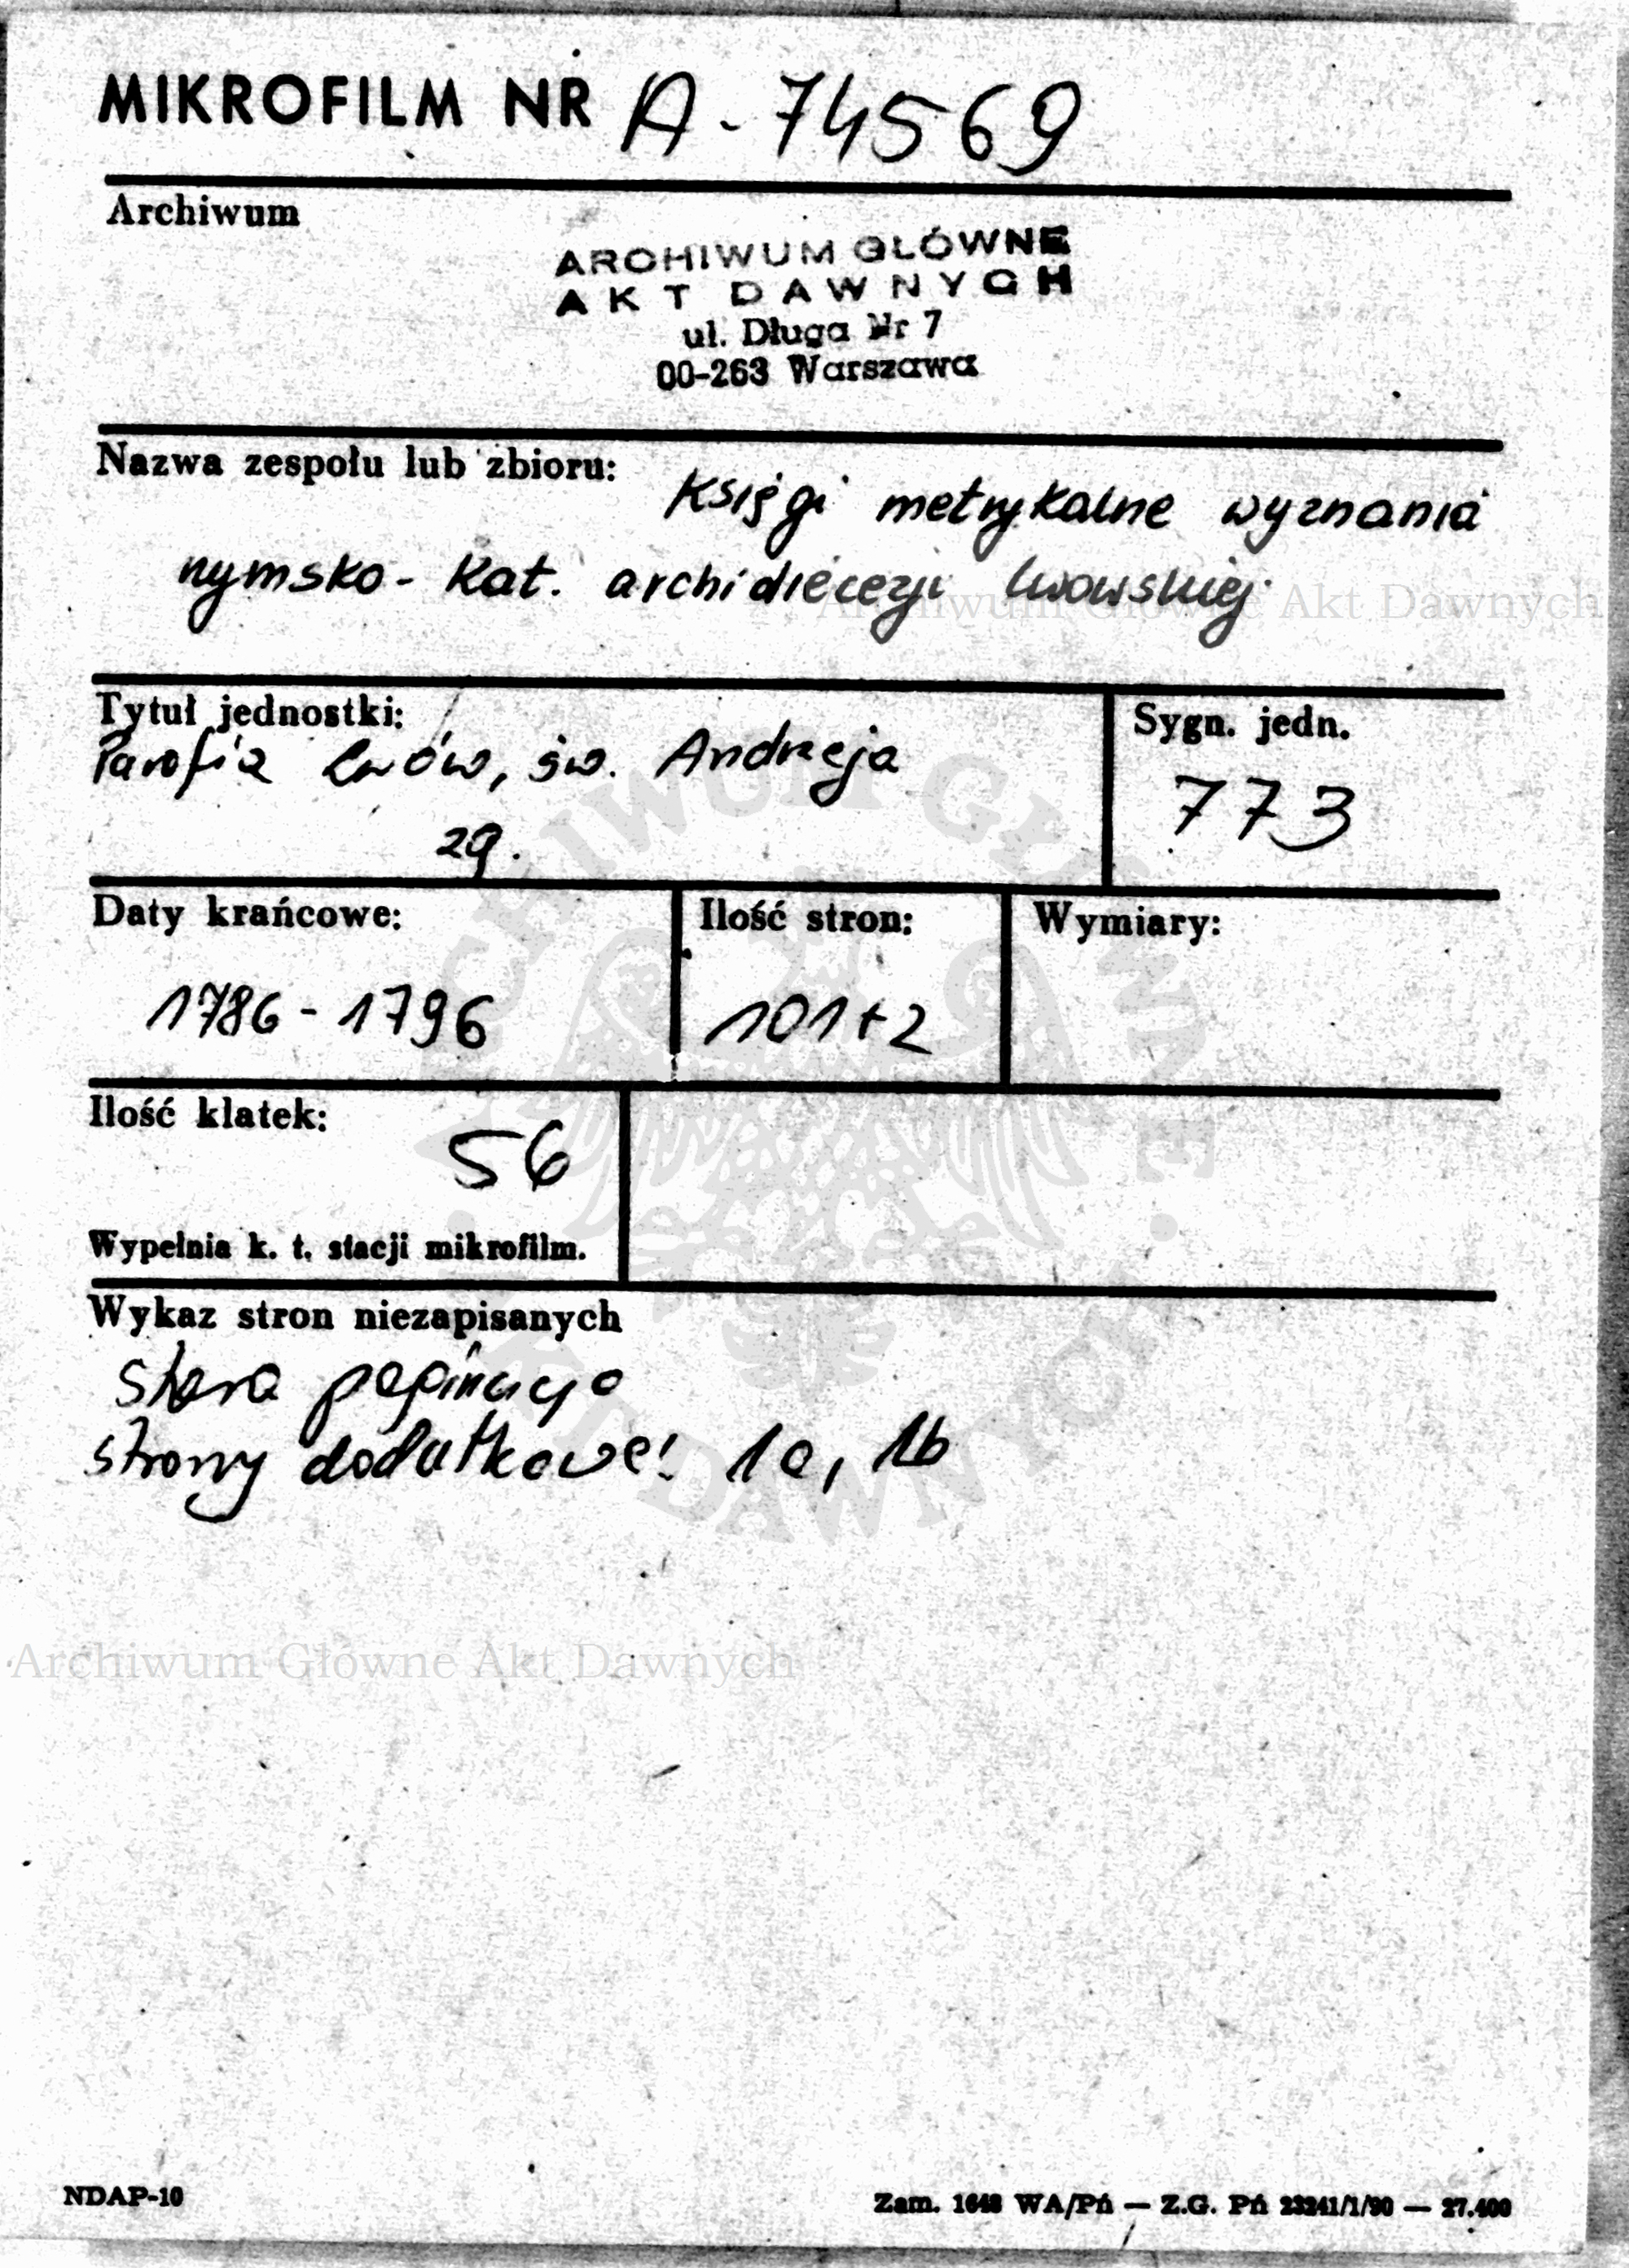 MIKROFILM NR A-74569
Archiwum
ARCHIWUM GŁÓWNE
AKT DAWNYCH
ul. Długa Nr 7
00-263 Warszawa
Nazwa zespołu lub zbioru: Księgi metrykalne wyznania
rymsko-kat. archidiecezji lwowskiej
Archiwum Główne Akt Dawnych
Tytuł jednostki:
Parafia Lwów, św. Andrzeja
zg.
Sygn. jedn.
773
Daty krańcowe:
1786-1796
Ilość stron:
101+2
Wymiary:
Ilość klatek:
56
Wypełnia k. t. stacji mikrofilm.
Wykaz stron niezapisanych
stara paginacja
strony dodatkowe: 1a, 1b
ARCHIWUM GŁÓWNE
AKT DAWNYCH
Archiwum Główne Akt Dawnych
NDAP-10
Zam. 1648 WA/Pń — Z.G. Pń 23241/1/90 — 27.400